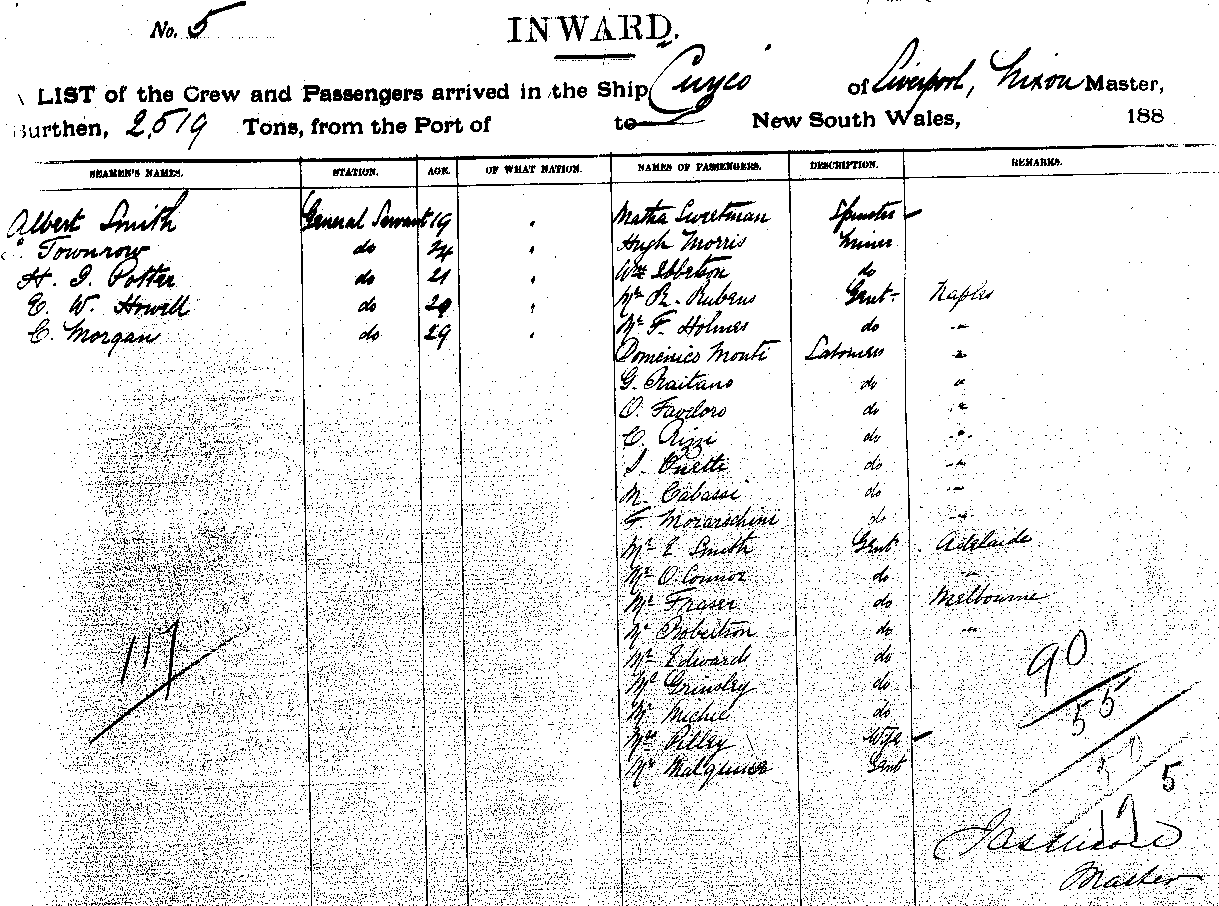 No. 5
INWARD.
LIST of the Crew and Passengers arrived in the Ship Cuzco of Liverpool, Nixon Master,
Burthen, 2,519 Tons, from the Port of to New South Wales, 188
SEAMEN'S NAMES. STATION. AGE. OF WHAT NATION. NAMES OF PASSENGERS. DESCRIPTION. REMARKS.
Albert Smith General Servant 19 " Matha Sweetman Spinster
" Townrow do 24 " Hugh Morris Miner
H. J. Potter do 21 " Wm Ibbetson do
E. W. Howell do 29 " Mr R. Rubens Gent Naples
C. Morgan do 29 " Mr F. Holmes do "
Domenico Monti Labourers "
G. Raitano do "
O. Favoloro do "
C. Rizzi do "
S. do "
M. Cabassi do "
F do "
Mr E Smith Gent Adelaide
Mr O'Connor do "
Mr Fraser do Melbourne
Mr Robertson do "
Mr Edwards do
Mr Grinsley do
Mr Michie do
Mrs Pilley Wife
Mr Gent
117
90
55
5
17
Master